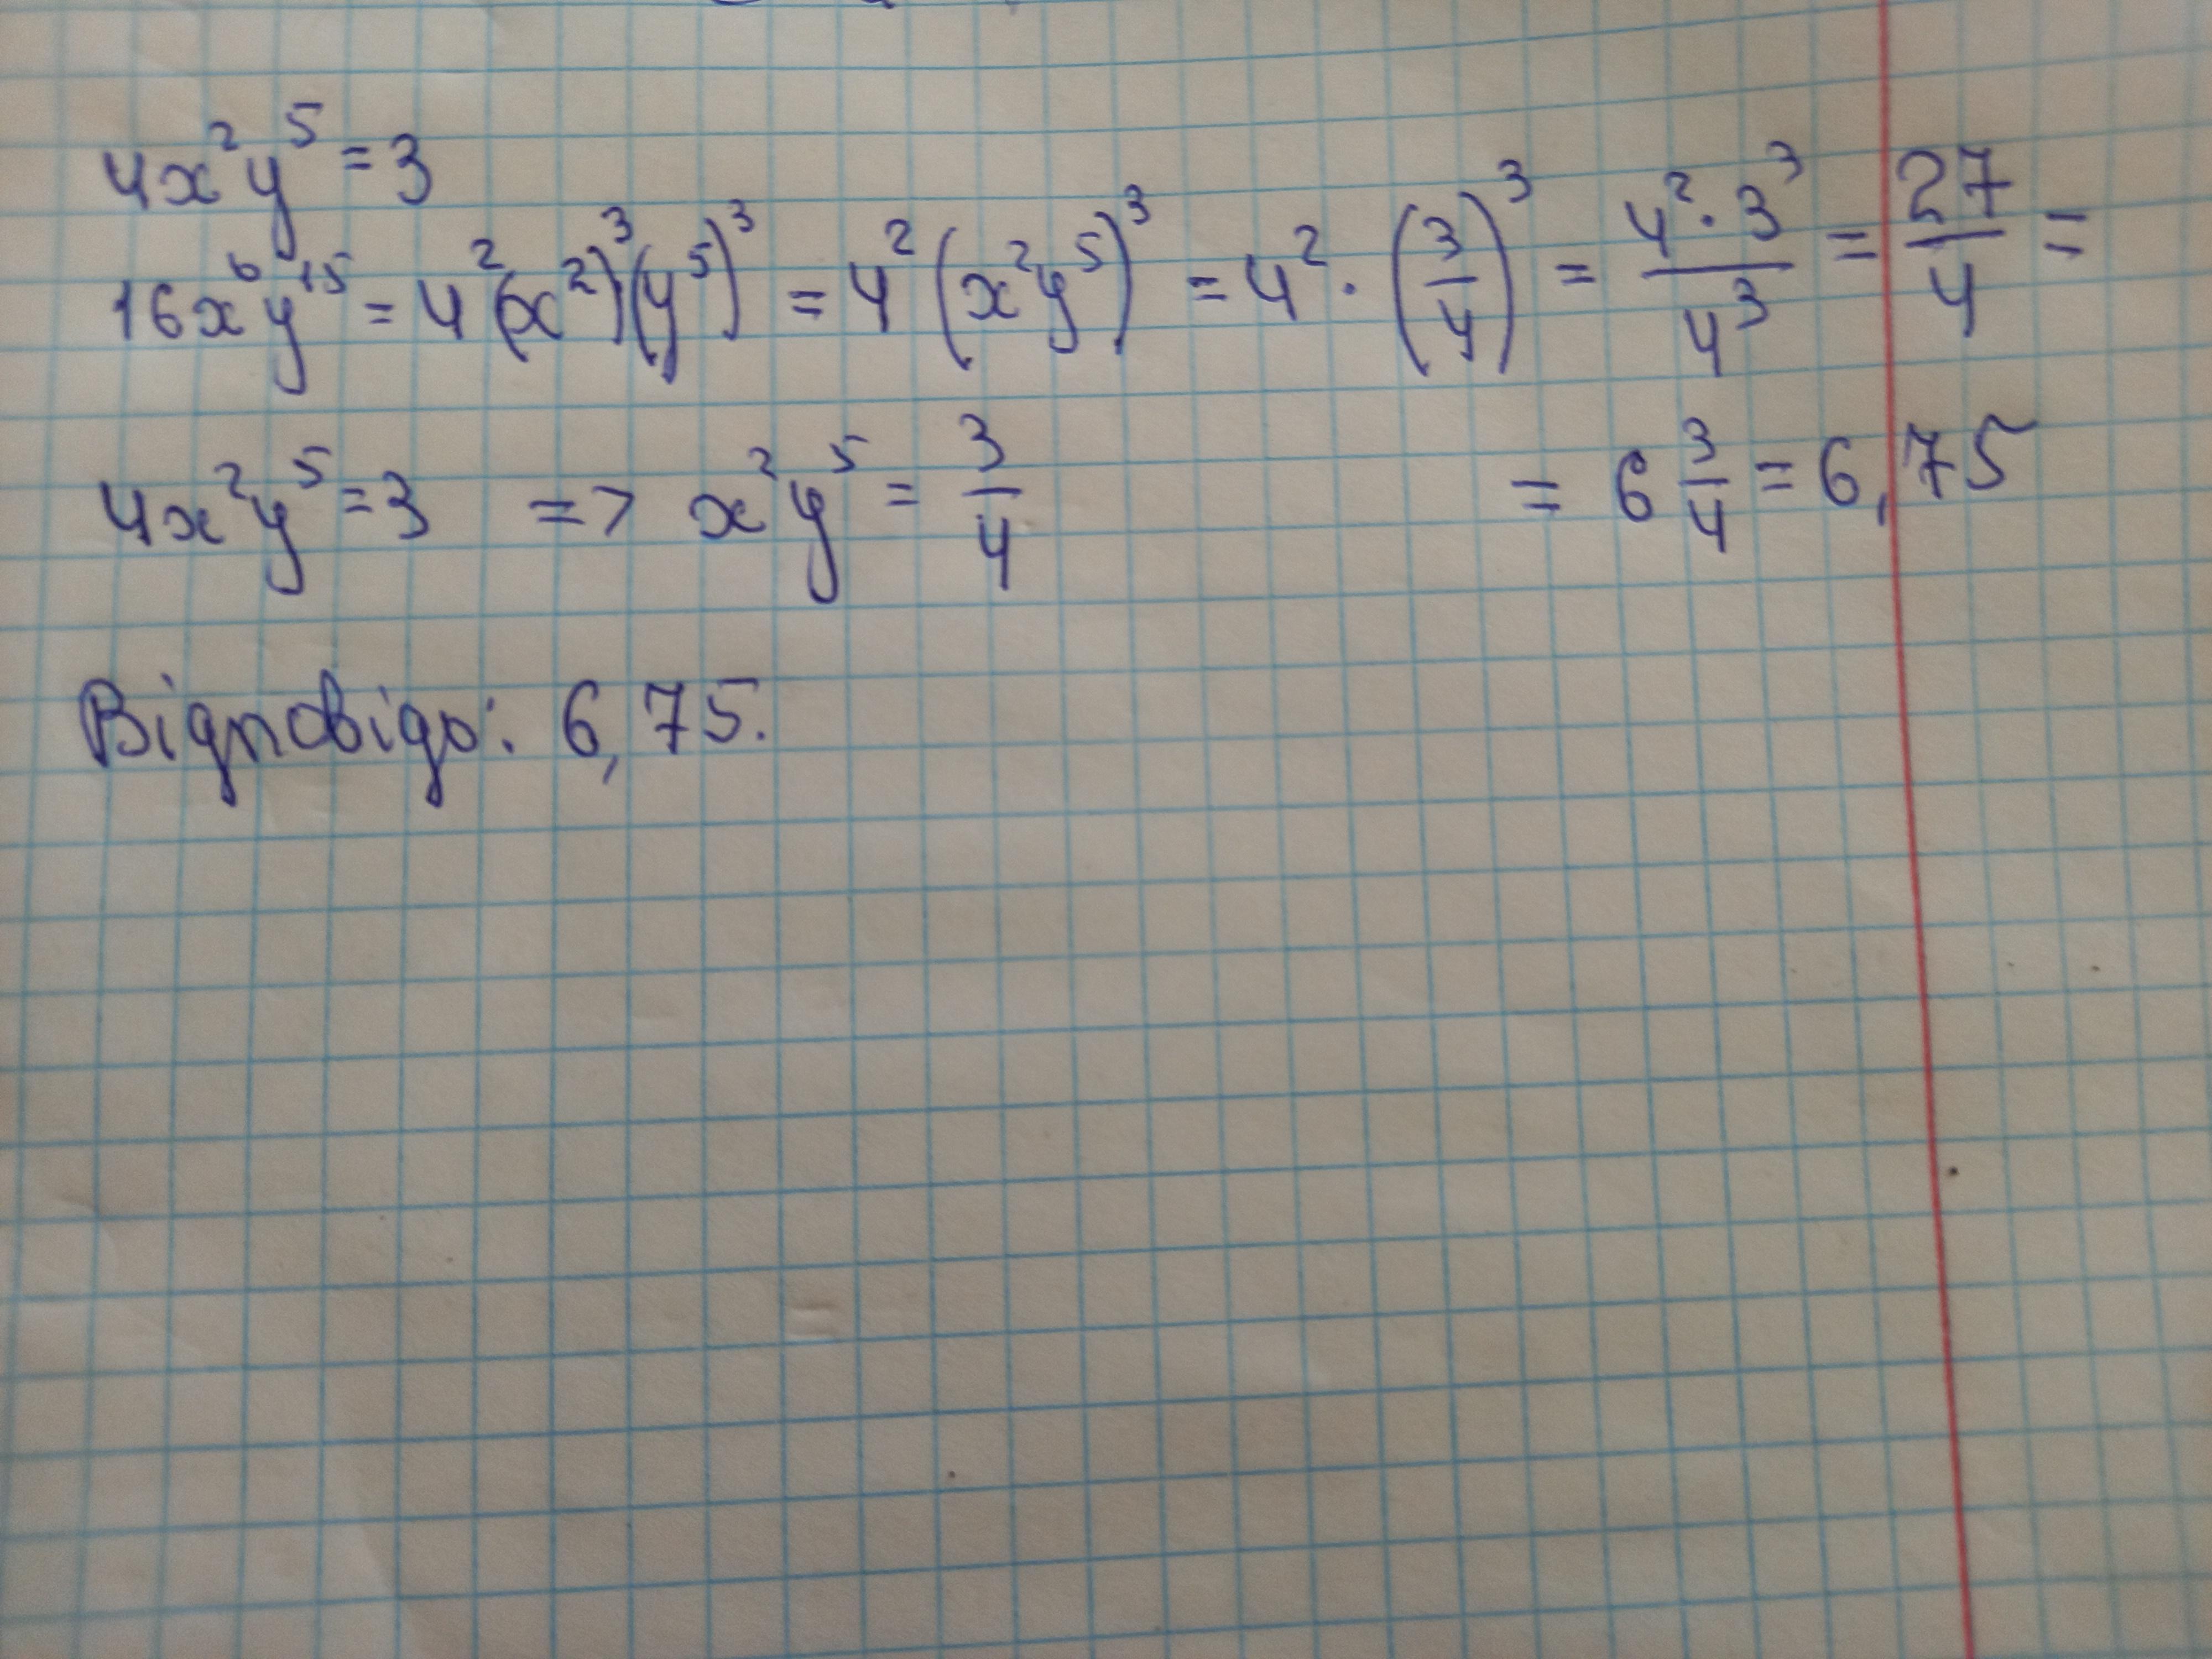 4x²y⁵ = 3
16x⁶y¹⁵ = 4²(x²)³(y⁵)³ = 4²(x²y⁵)³ = 4² · (3/4)³ = 4² · 3³ / 4³ = 27/4 =
4x²y⁵ = 3 => x²y⁵ = 3/4 = 6 3/4 = 6,75
Відповідь: 6,75.